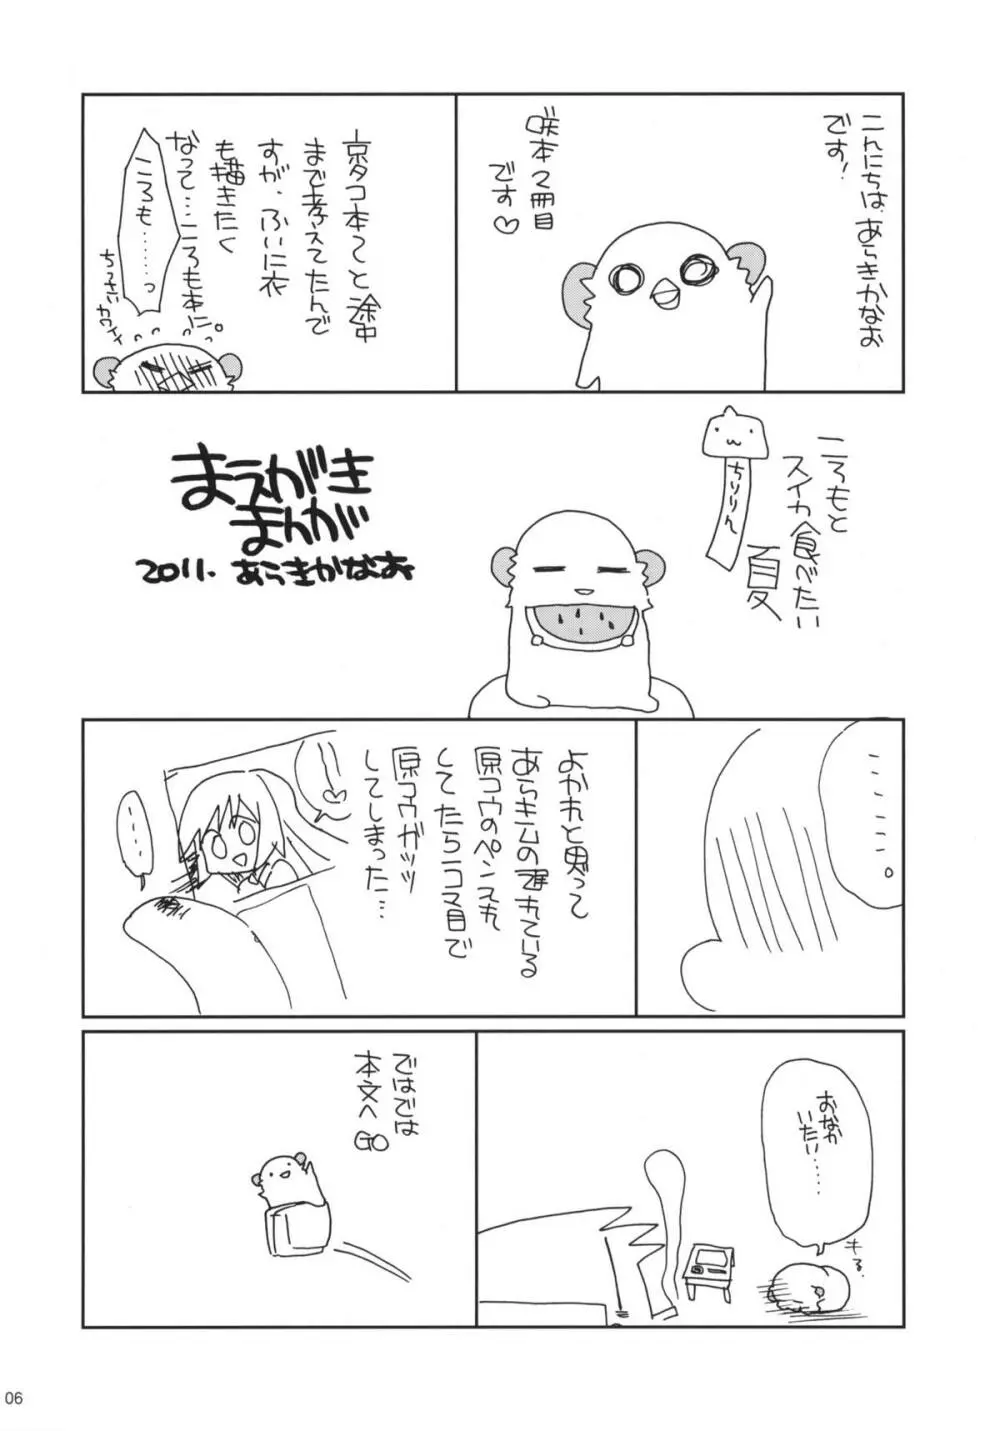 こんにちは、あらきかなお
です!
咲本2冊目
です♡
京タコ本てと途中
まで考えてたんで
すが、ふいに衣
も描きたく
なって…ころも本に。
ころも……っ
ちっさいカワイイ
ころもと
スイカ食べたい
夏
ちりりん
まえがき
まんが
2011. あらきかなお
……。
よかれと思って
あらキムの遅れている
原コウのペン入れ
してたら一コマ目で
原コウガッツ
してしまった…
……
おなか
いたい……
キる
ではでは
本文へ
GO
06